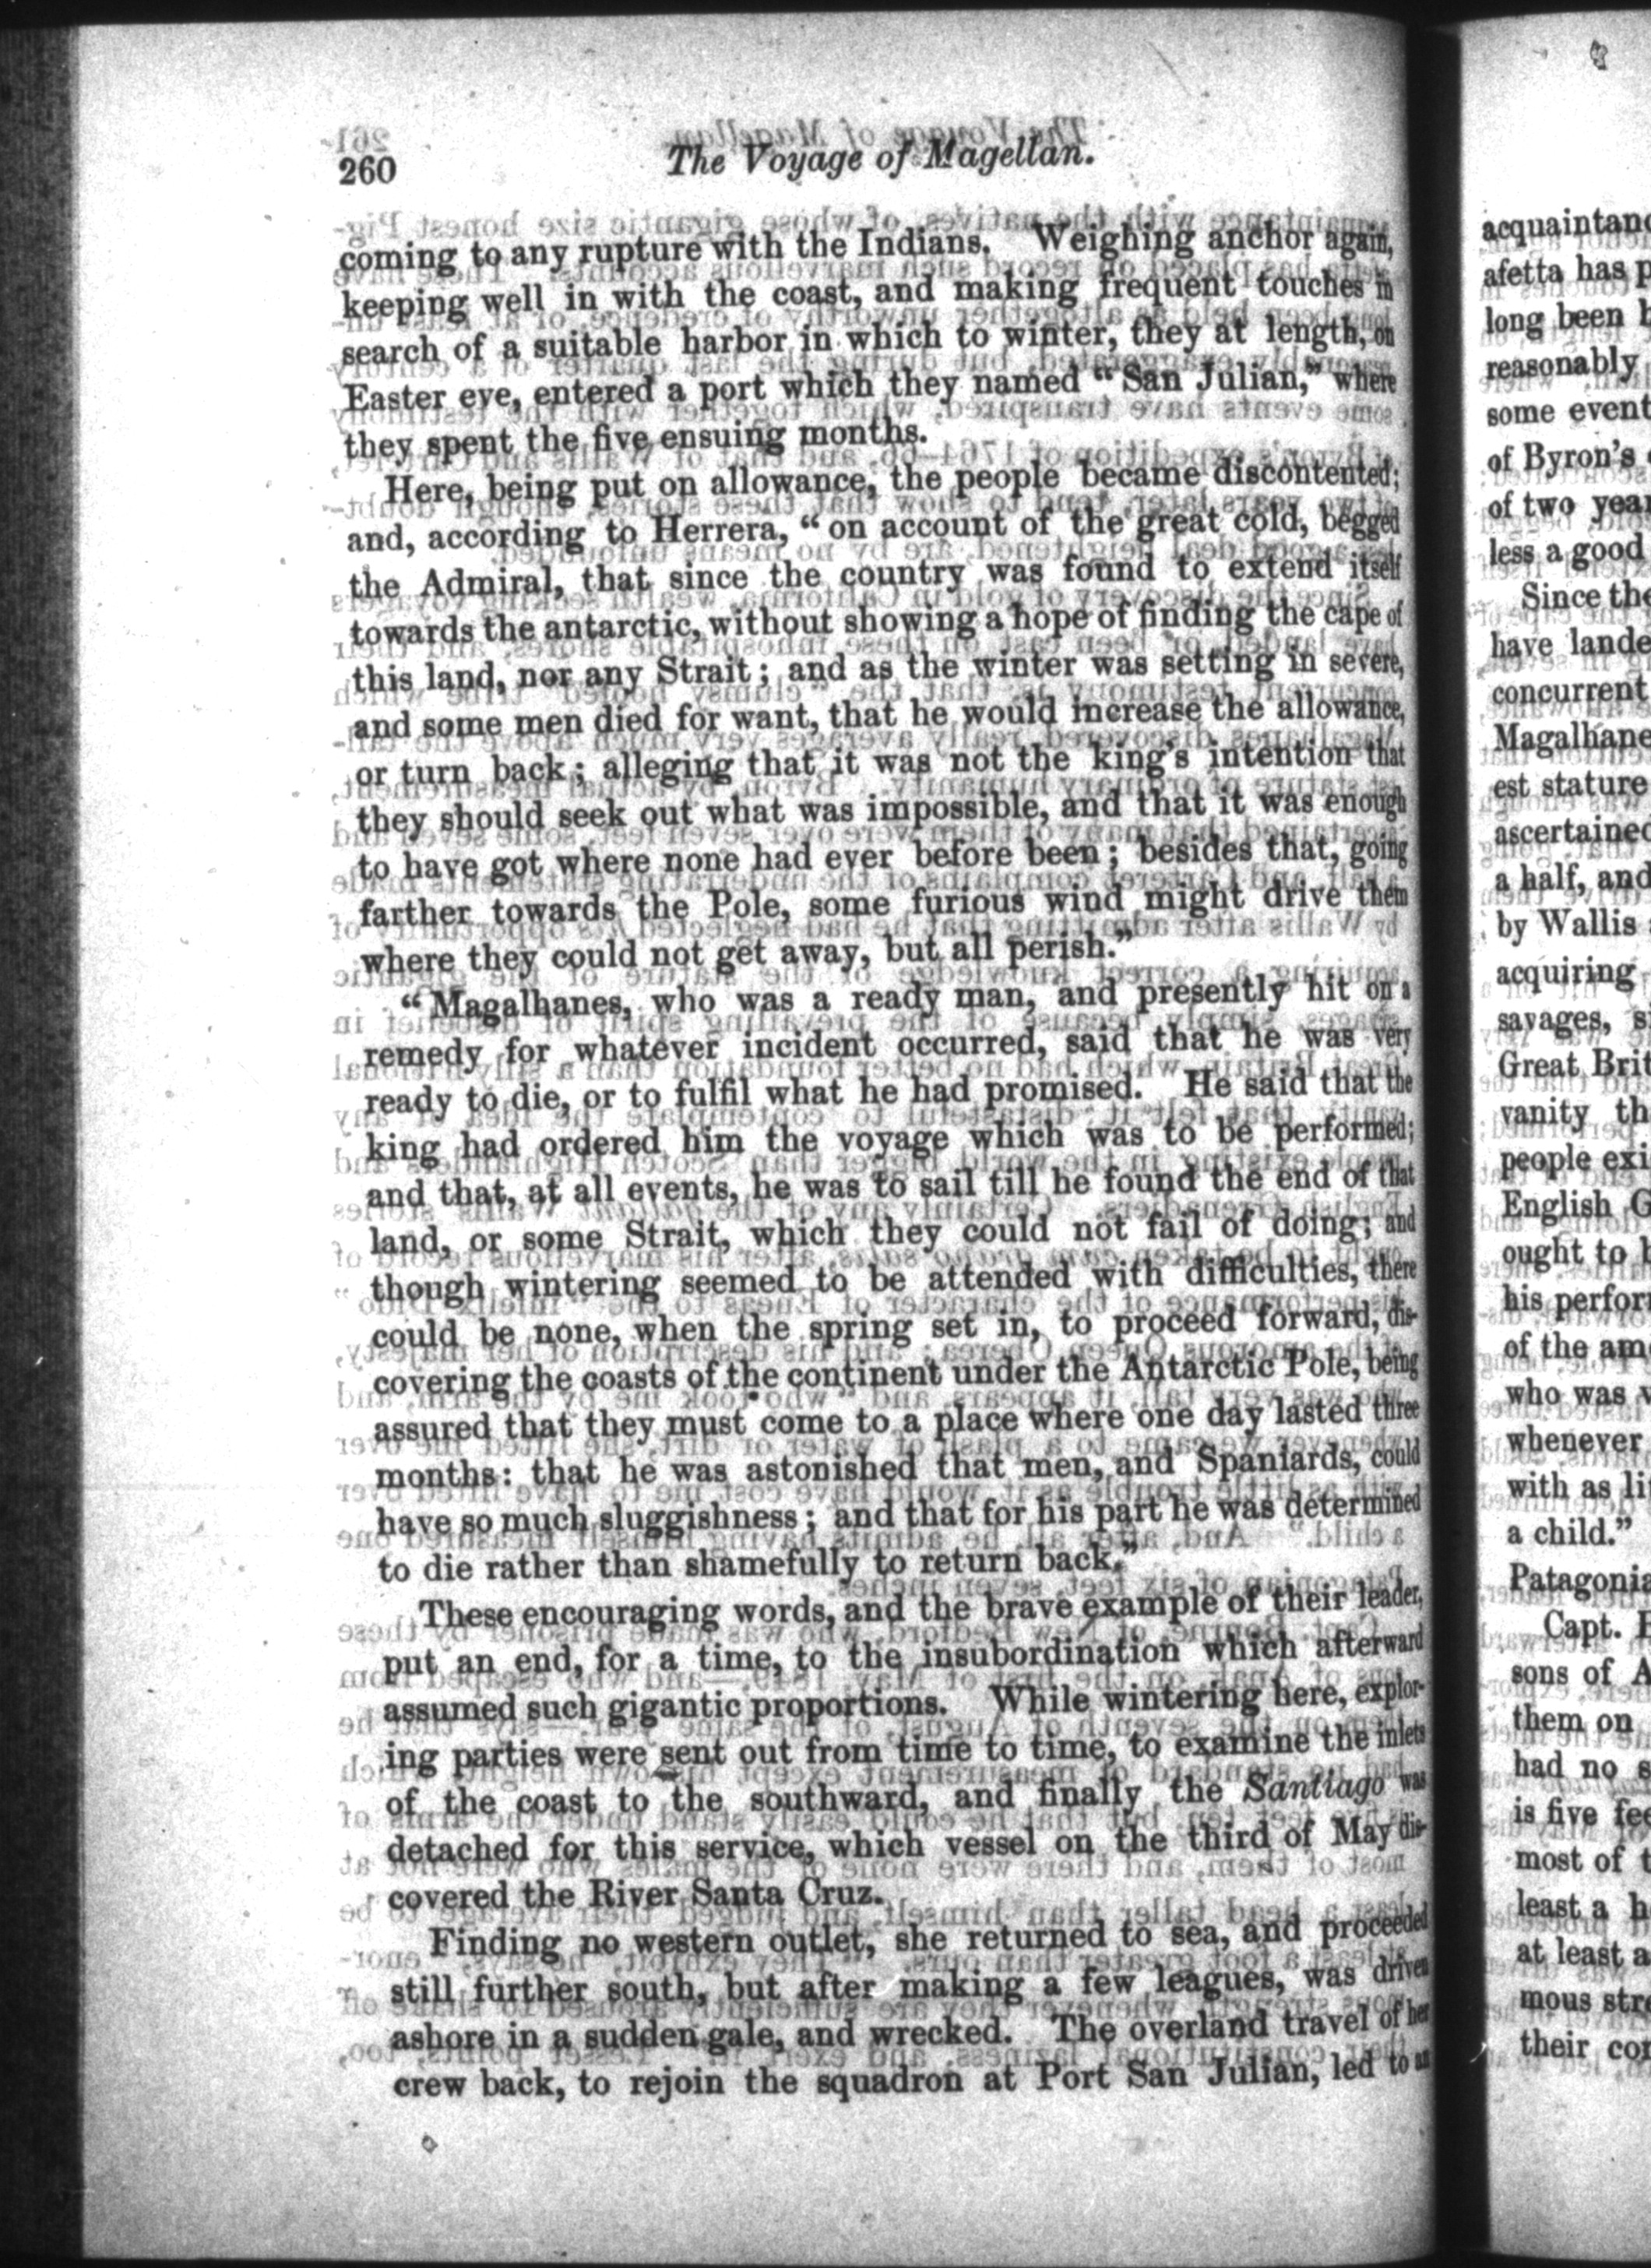 260 The Voyage of Magellan.
coming to any rupture with the Indians. Weighing anchor again,
keeping well in with the coast, and making frequent touches in
search of a suitable harbor in which to winter, they at length, on
Easter eve, entered a port which they named “San Julian,” where
they spent the five ensuing months.
Here, being put on allowance, the people became discontented;
and, according to Herrera, “on account of the great cold, begged
the Admiral, that since the country was found to extend itself
towards the antarctic, without showing a hope of finding the cape of
this land, nor any Strait; and as the winter was setting in severe,
and some men died for want, that he would increase the allowance,
or turn back; alleging that it was not the king’s intention that
they should seek out what was impossible, and that it was enough
to have got where none had ever before been; besides that, going
farther towards the Pole, some furious wind might drive them
where they could not get away, but all perish.”
“Magalhanes, who was a ready man, and presently hit on a
remedy for whatever incident occurred, said that he was very
ready to die, or to fulfil what he had promised. He said that the
king had ordered him the voyage which was to be performed;
and that, at all events, he was to sail till he found the end of that
land, or some Strait, which they could not fail of doing; and
though wintering seemed to be attended with difficulties, there
could be none, when the spring set in, to proceed forward, dis-
covering the coasts of the continent under the Antarctic Pole, being
assured that they must come to a place where one day lasted three
months: that he was astonished that men, and Spaniards, could
have so much sluggishness; and that for his part he was determined
to die rather than shamefully to return back.”
These encouraging words, and the brave example of their leader,
put an end, for a time, to the insubordination which afterward
assumed such gigantic proportions. While wintering here, explor-
ing parties were sent out from time to time, to examine the inlets
of the coast to the southward, and finally the Santiago was
detached for this service, which vessel on the third of May dis-
covered the River Santa Cruz.
Finding no western outlet, she returned to sea, and proceeded
still further south, but after making a few leagues, was driven
ashore in a sudden gale, and wrecked. The overland travel of her
crew back, to rejoin the squadron at Port San Julian, led to an
acquaintanc
afetta has p
long been
reasonably
some event
of Byron’s
of two year
less a good
Since the
have lande
concurrent
Magalhane
est stature
ascertained
a half, and
by Wallis
acquiring
savages, s
Great Brit
vanity th
people exi
English G
ought to
his perfor
of the am
who was v
whenever
with as li
a child.”
Patagonia
Capt.
sons of A
them on
had no s
is five fee
most of t
least a h
at least a
mous stre
their con